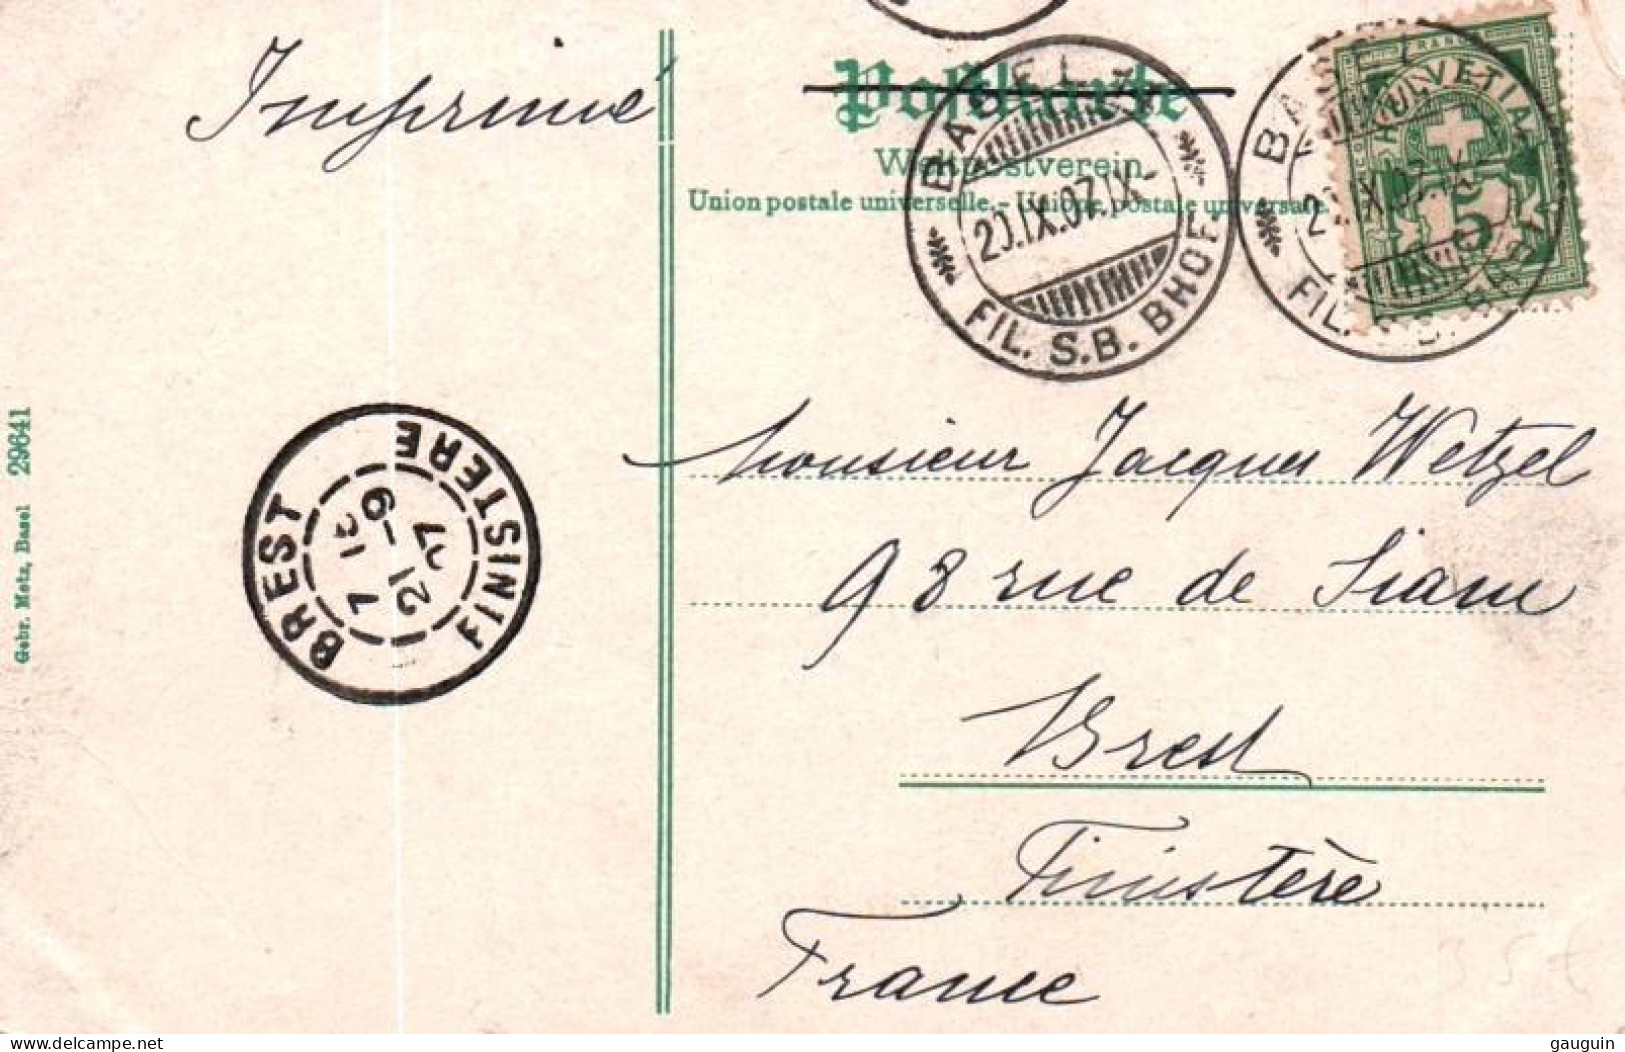 Imprimé
Postkarte
Weltpostverein.
Union postale universelle. - Unione postale universale.
BASEL
20.IX.07.IX-
FIL. S.B. BHOF.
BASEL
FIL.
FRANCO
HELVETIA
5
Gebr. Metz, Basel 29641
BREST
FINISTERE
7 15
21 - 9
07
Monsieur Jacques Wetzel
98 rue de Siam
Brest
Finistère
France
35 €
delcampe.net
gauguin